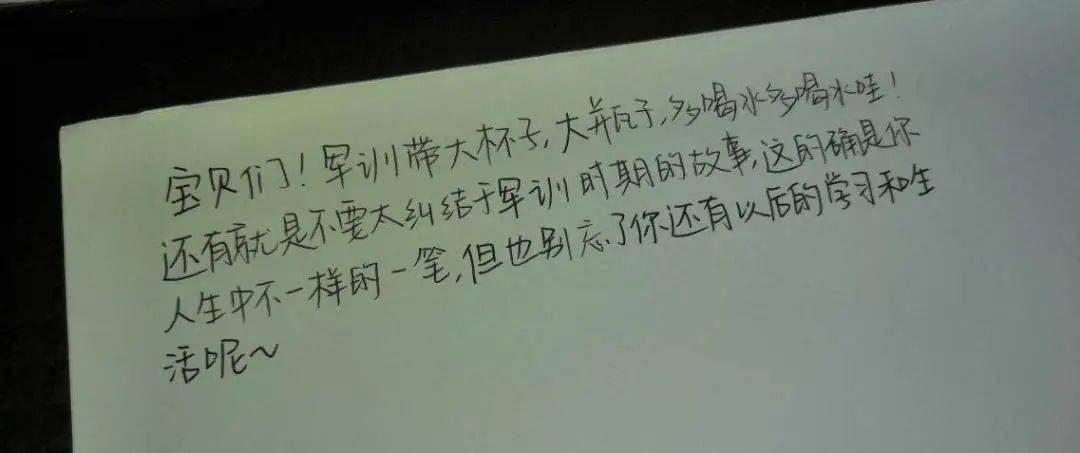 宝贝们！军训带大杯子，大瓶子，多喝水多喝水哇！
还有就是不要太纠结于军训时期的故事，这的确是你
人生中不一样的一笔，但也别忘了你还有以后的学习和生
活呢～